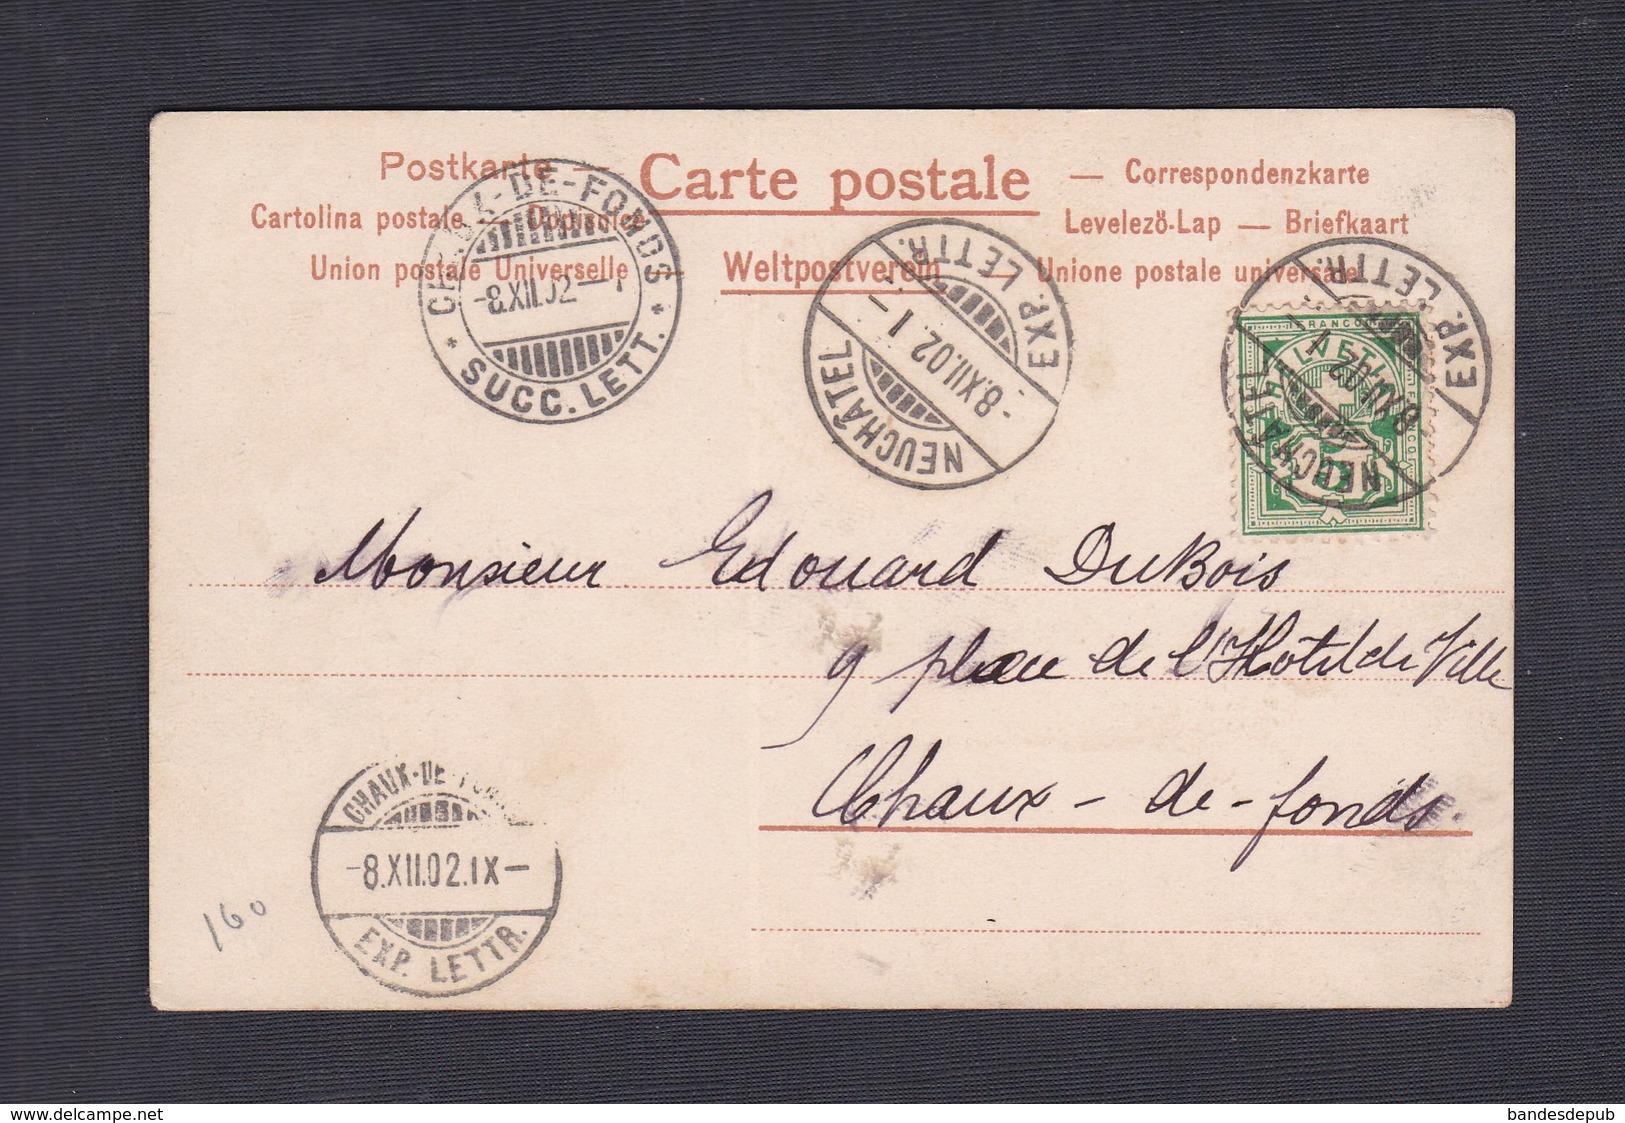 Postkarte — Carte postale — Correspondenzkarte
Cartolina postale — Dopisnice Levelező-Lap — Briefkaart
Union postale Universelle — Weltpostverein — Unione postale universale
CHAUX-DE-FONDS
-8.XII.02-
* SUCC. LETT. *
EXP. LETTR.
-8.XII.02.I-
NEUCHÂTEL
EXP. LETTR.
8.XII.02
NEUCHÂTEL
FRANCO
Monsieur Edouard DuBois
9 place de l'Hotel de Ville
Chaux-de-fonds.
CHAUX-DE-FONDS
-8.XII.02.IX-
EXP. LETTR.
160
www.delcampe.net
bandesdepub